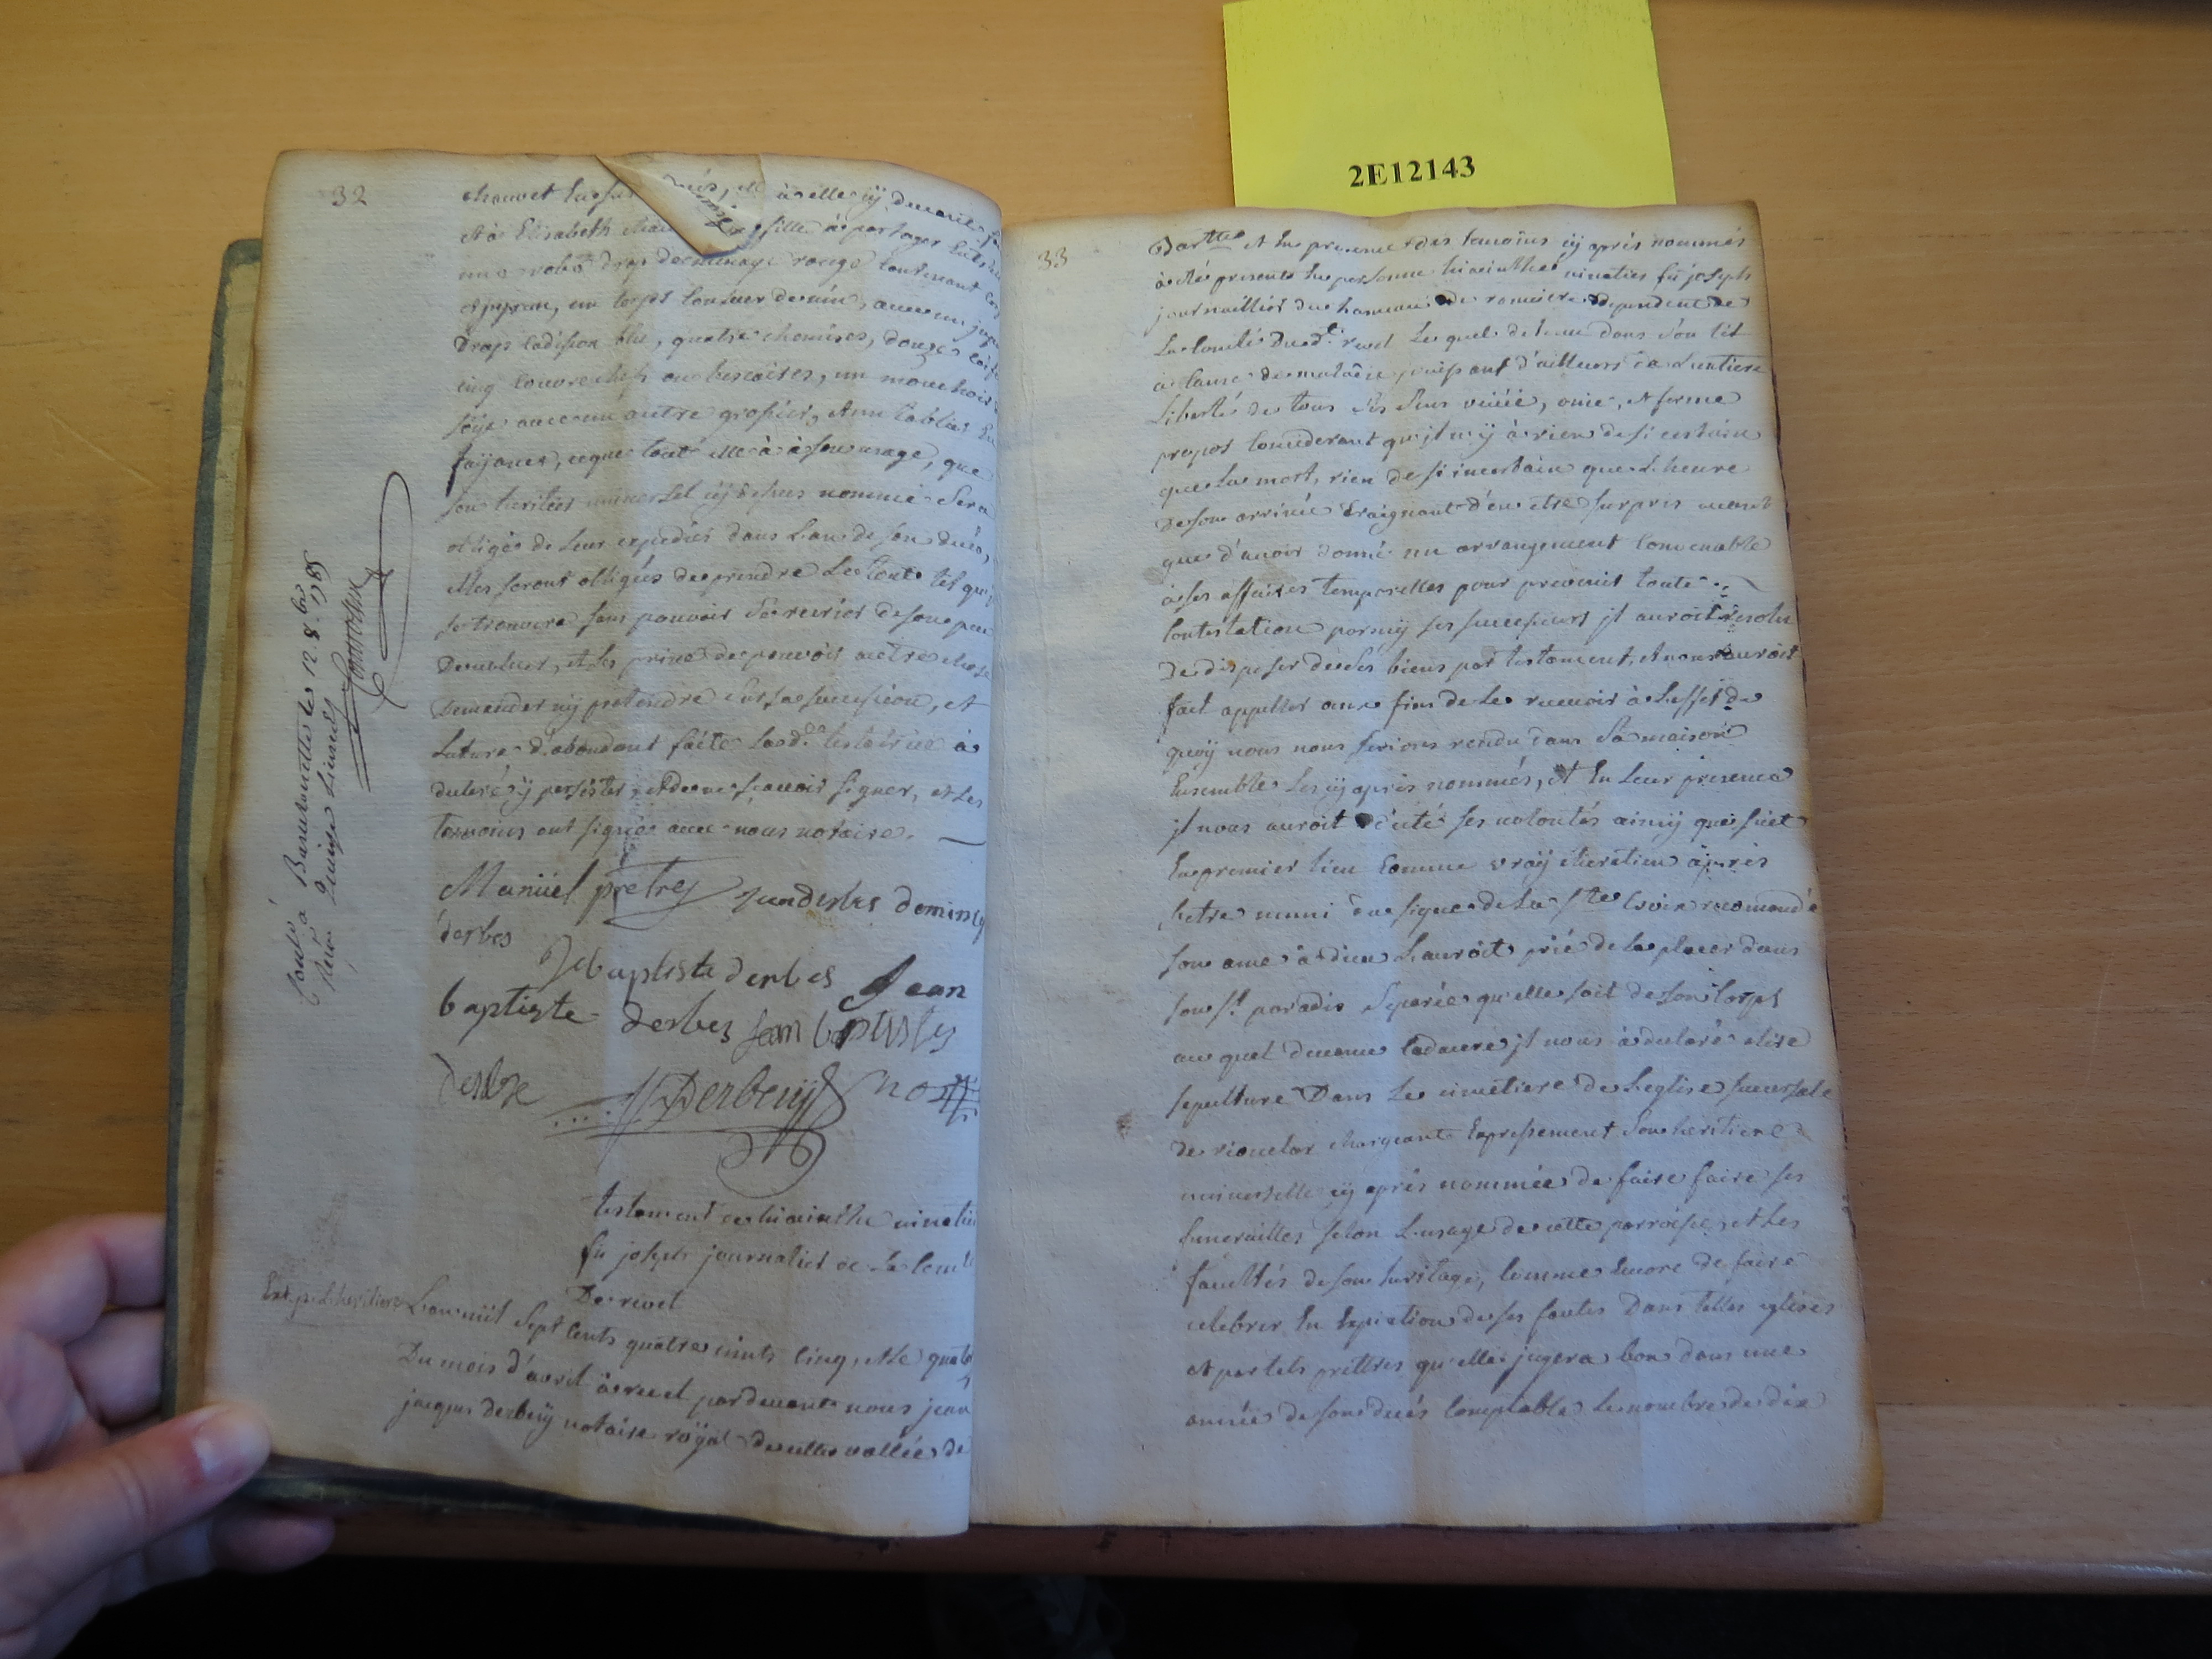 2E12143
32
chouvet sa fille à elle cy devant
et à Elisabeth sa fille à partager
une robe drap de menage rouge contenant
et jupon, un corps couleur de vin, avec un jupe
Drap cadisson bleu, quatre chemises, douze coiffes
cinq couvrechefs ou bescoites, un mouchoir
soye avec un autre grossier, et un tablier
le que tout elle à à son usage, que
son heritier universel cy dessus nommé sera
obligé de leur expedier dans l'an de son decès,
elles seront obligées de prendre le tout tel qu'il
se trouvera sans pouvoir se
et les prive de pouvoir autre chose
Demander ny pretendre sur sa succession, et
Lecture d'abondant faite lad.e testatrice à
declaré y persister, et de ne sçavoir signer, et les
temoins ont signé avec nous notaire.
Manuel pretre jean derbes dominiq
derbes
J baptiste derbes Jean
baptiste derbes jean baptiste
derbe
Derbenÿ no.re
Controllé à Barcelonnette le 12. 8.bre 1785
testament de hiacinthe
fû joseph journalier de la Comté
De revel
Ext. p. l'heritiere
L'an mil sept cents quatre vints cinq, et le
Du mois d'avril à revel pardevant nous jean
jacques derbenÿ notaire royal de cette vallée de
33
Bar.tte et en presence des temoins cy après nommés
à été present en personne hiacinthe fû joseph
journaillier du hameau de dependent de
la Comté Dud.t revel Lequel detenu dans son lit
à cause de maladie jouissant d'ailleurs de l'entiere
Liberté de tous ses sens veüe, ouie, et ferme
propos Considerant qu'jl n'ÿ à rien de si certain
que la mort, rien de si incertain que l'heure
De son arrivée Craignant d'en etre surpris avant
que d'avoir donné un arrangement Convenable
à ses affaires temporelles pour prevenir toute
Contestation parmy ses successeurs jl auroit resolu
De disposer de ses biens par testament, et nous auroit
fait appeller aux fins de le recevoir à l'effet de
quoÿ nous nous serions rendu dans sa maison
Ensemble les cy après nommés, et En leur presence
jl nous auroit dicté ses volontés ainsy que suit
En premier lieu Comme vraÿ chretien après
s'etre muni du signe de la s.te Croix recomandé
son ame à dieu L'auroit prié de la placer dans
son s.t paradis separée qu'elle soit de son Corps
au quel devenu Cadavre jl nous à declaré elire
sepulture Dans le cimetiere de l'eglise succursale
de chargeant Expressement son heritiere
universelle cy après nommée de faire faire ses
funerailles selon l'usage de cette parroisse, et les
facultés de son heritage, Comme Encore de faire
celebrer En Expiation de ses fautes Dans telles eglises
et par tels prettres qu'elle jugera bon dans une
année de son decés Comptable le nombre de dix